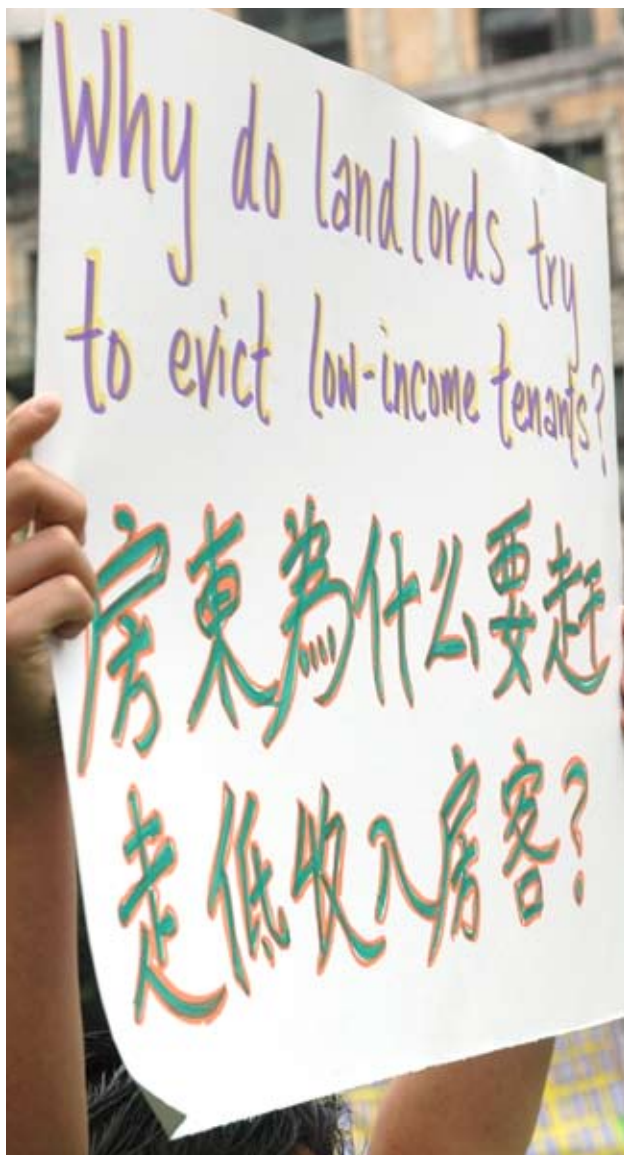 Why do landlords try
to evict low-income tenants?
房東為什么要赶
走低收入房客?